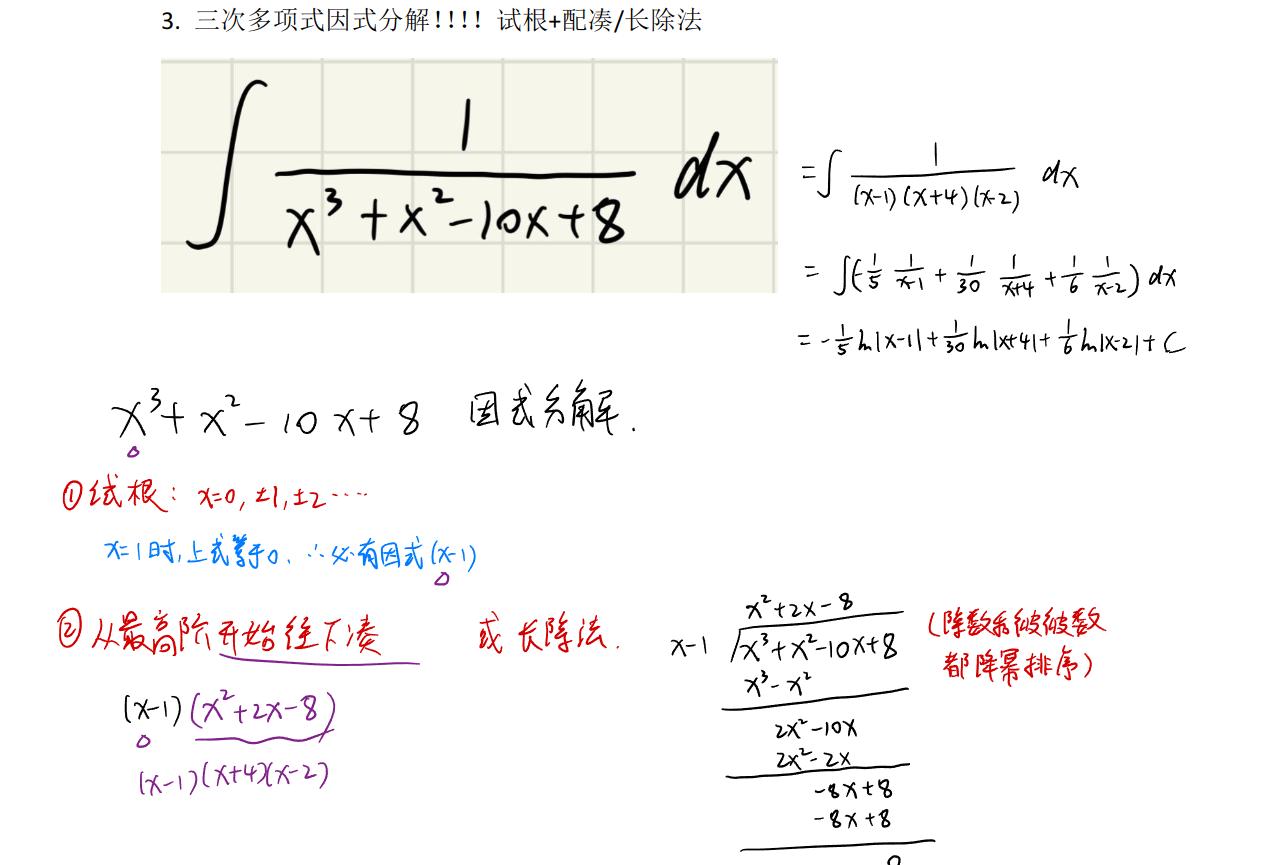 3. 三次多项式因式分解!!!! 试根+配凑/长除法
∫ 1/(x³+x²-10x+8) dx
= ∫ 1/((x-1)(x+4)(x-2)) dx
= ∫(-1/5 1/(x-1) + 1/30 1/(x+4) + 1/6 1/(x-2)) dx
= -1/5 ln|x-1| + 1/30 ln|x+4| + 1/6 ln|x-2| + C
x³+x²-10x+8 因式分解.
①试根: x=0, ±1, ±2 ····
x=1时,上式等于0. ∴必有因式(x-1)
②从最高阶开始往下凑 或 长除法.
(x-1)(x²+2x-8)
(x-1)(x+4)(x-2)
x²+2x-8
x-1 √x³+x²-10x+8
x³-x²
2x²-10x
2x²-2x
-8x+8
-8x+8
0
(除数和被被数
都降幂排序)